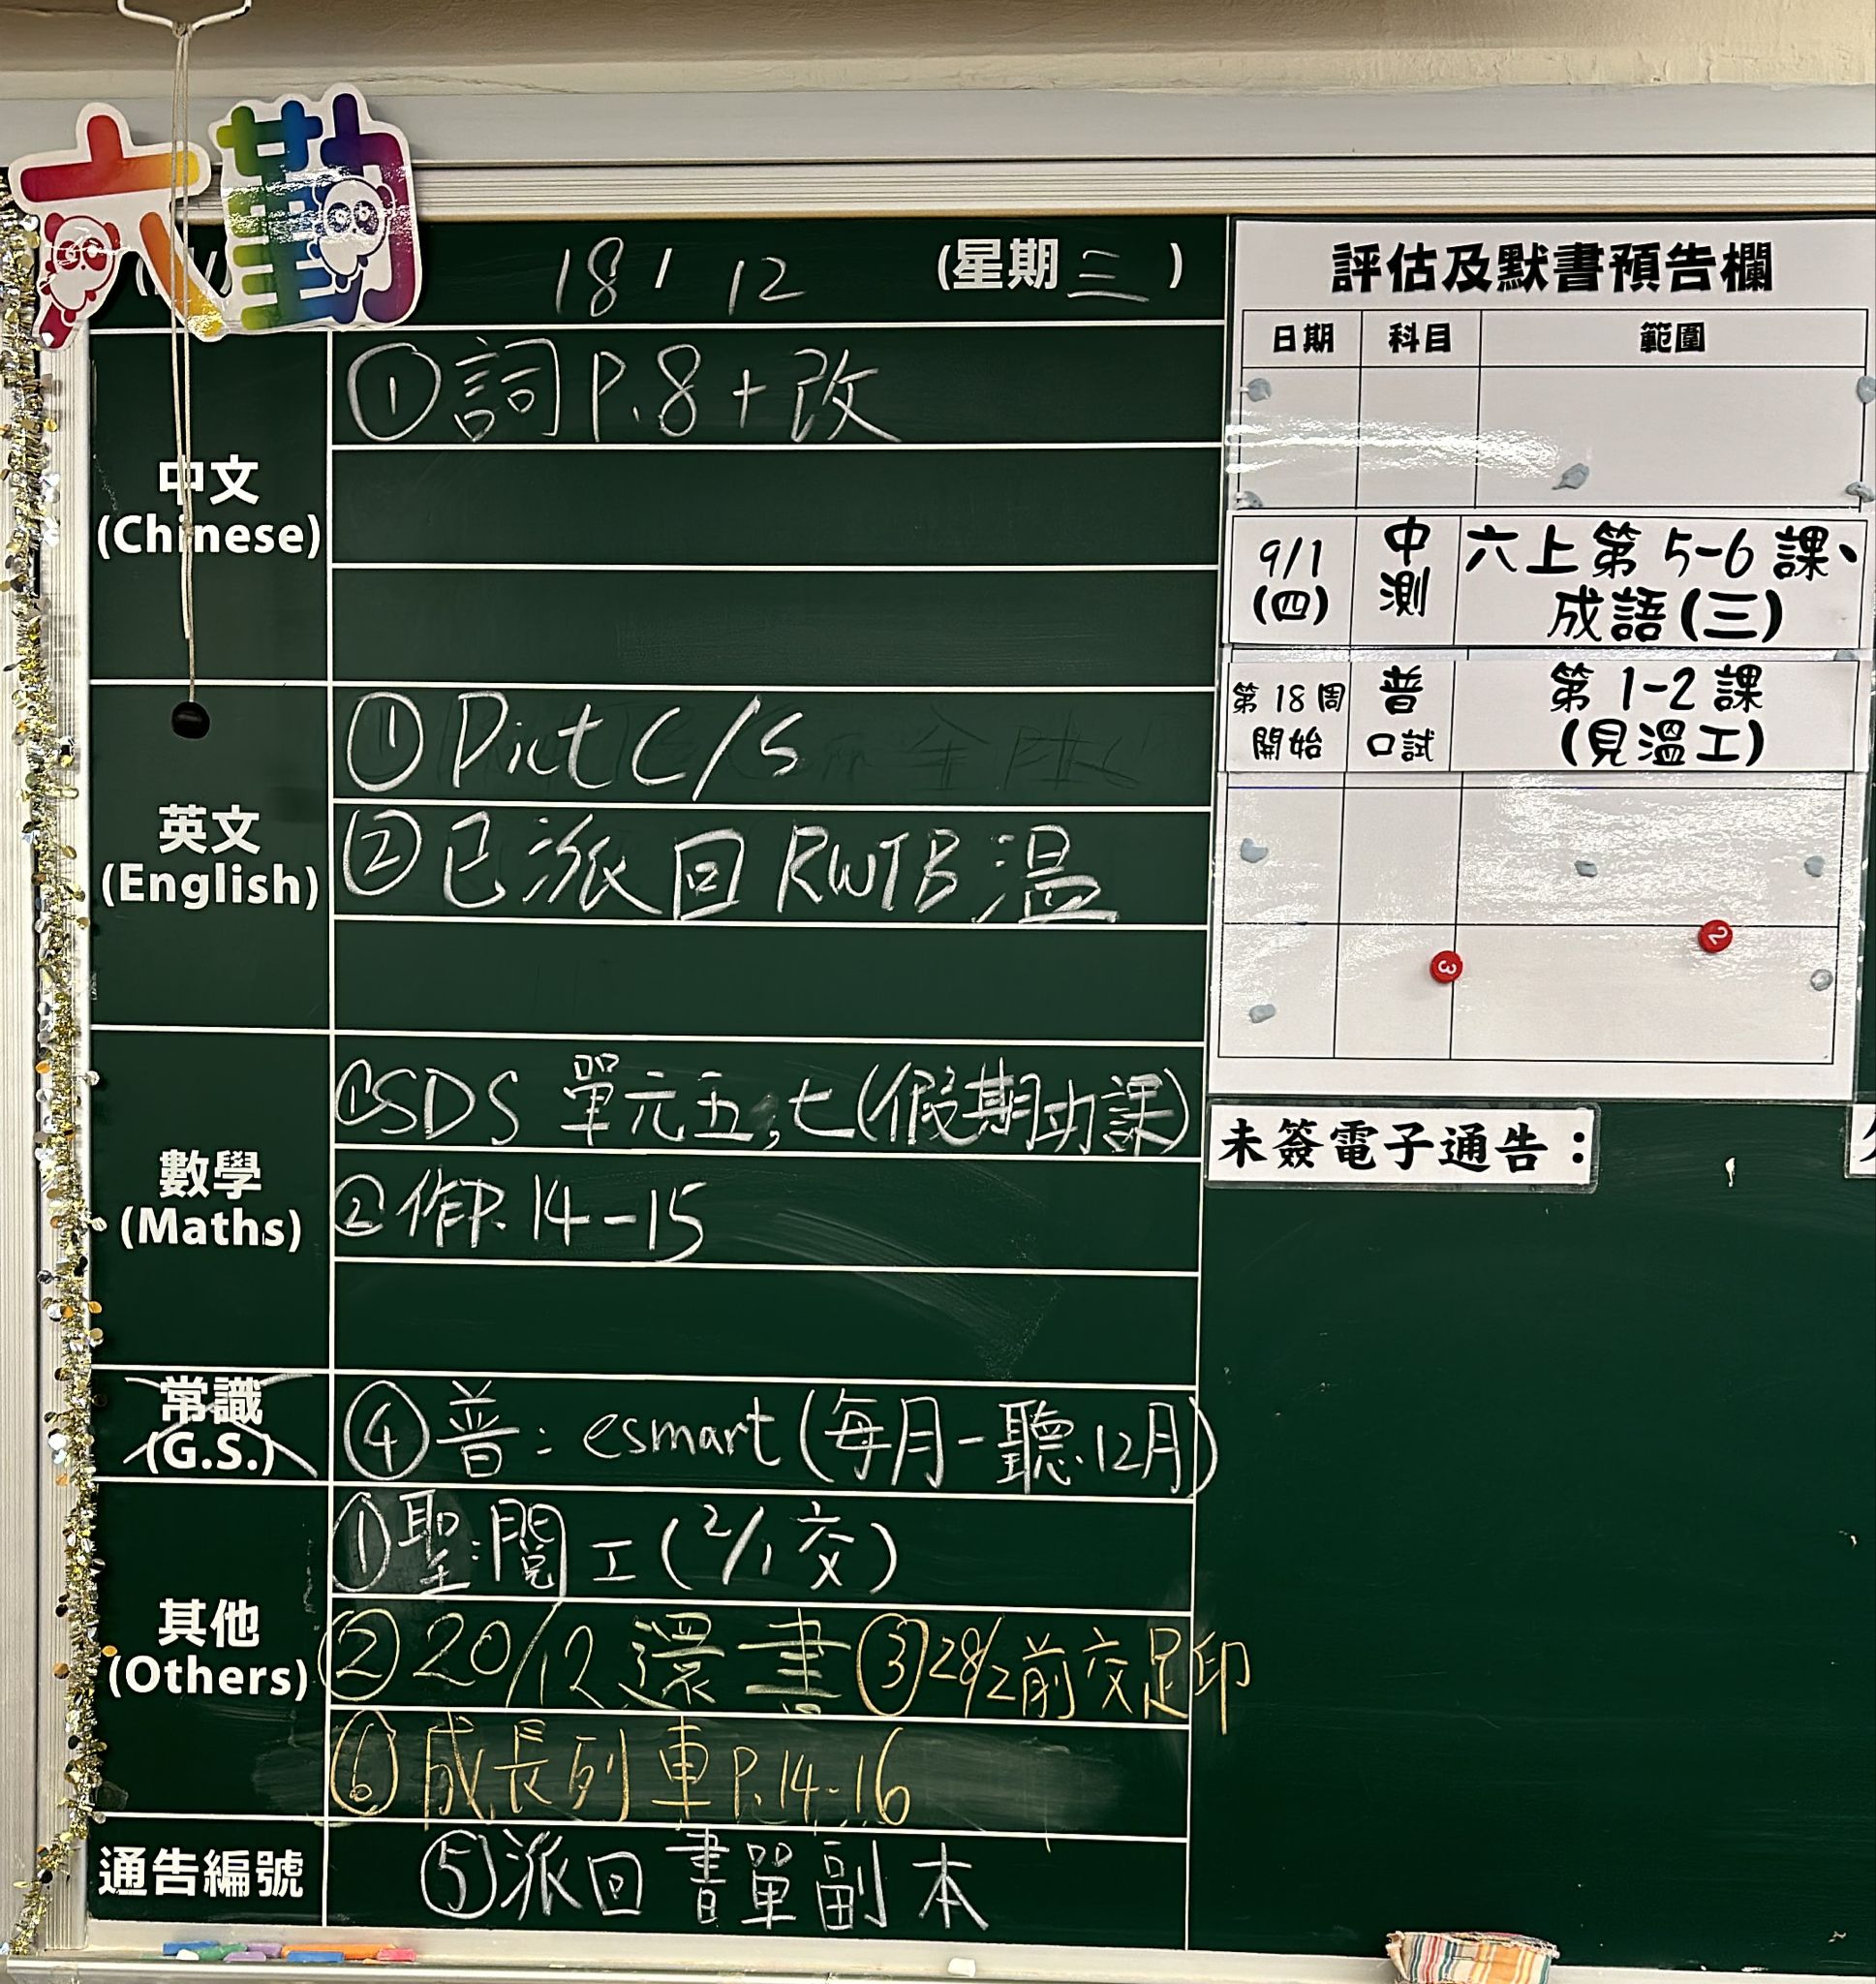 六勤
18 / 12 (星期三)
中文
(Chinese)
① 詞 P.8 + 改
英文
(English)
① Dict C/S
② 已派回 RWTB 溫
數學
(Maths)
① SDS 單元五,七(假期功課)
② 作P. 14-15
常識
(G.S.)
④ 普: esmart (每月一聽.12月)
其他
(Others)
① 聖:閱工 (2/1 交)
② 20/12 還書 ③ 28/2前交足印
⑥ 成長列車 P.14-16
通告編號
⑤ 派回書單副本
評估及默書預告欄
日期 科目 範圍
9/1
(四)
中
測
六上第 5-6 課、
成語(三)
第 18 周
開始
普
口試
第 1-2 課
(見溫工)
3
2
未簽電子通告：